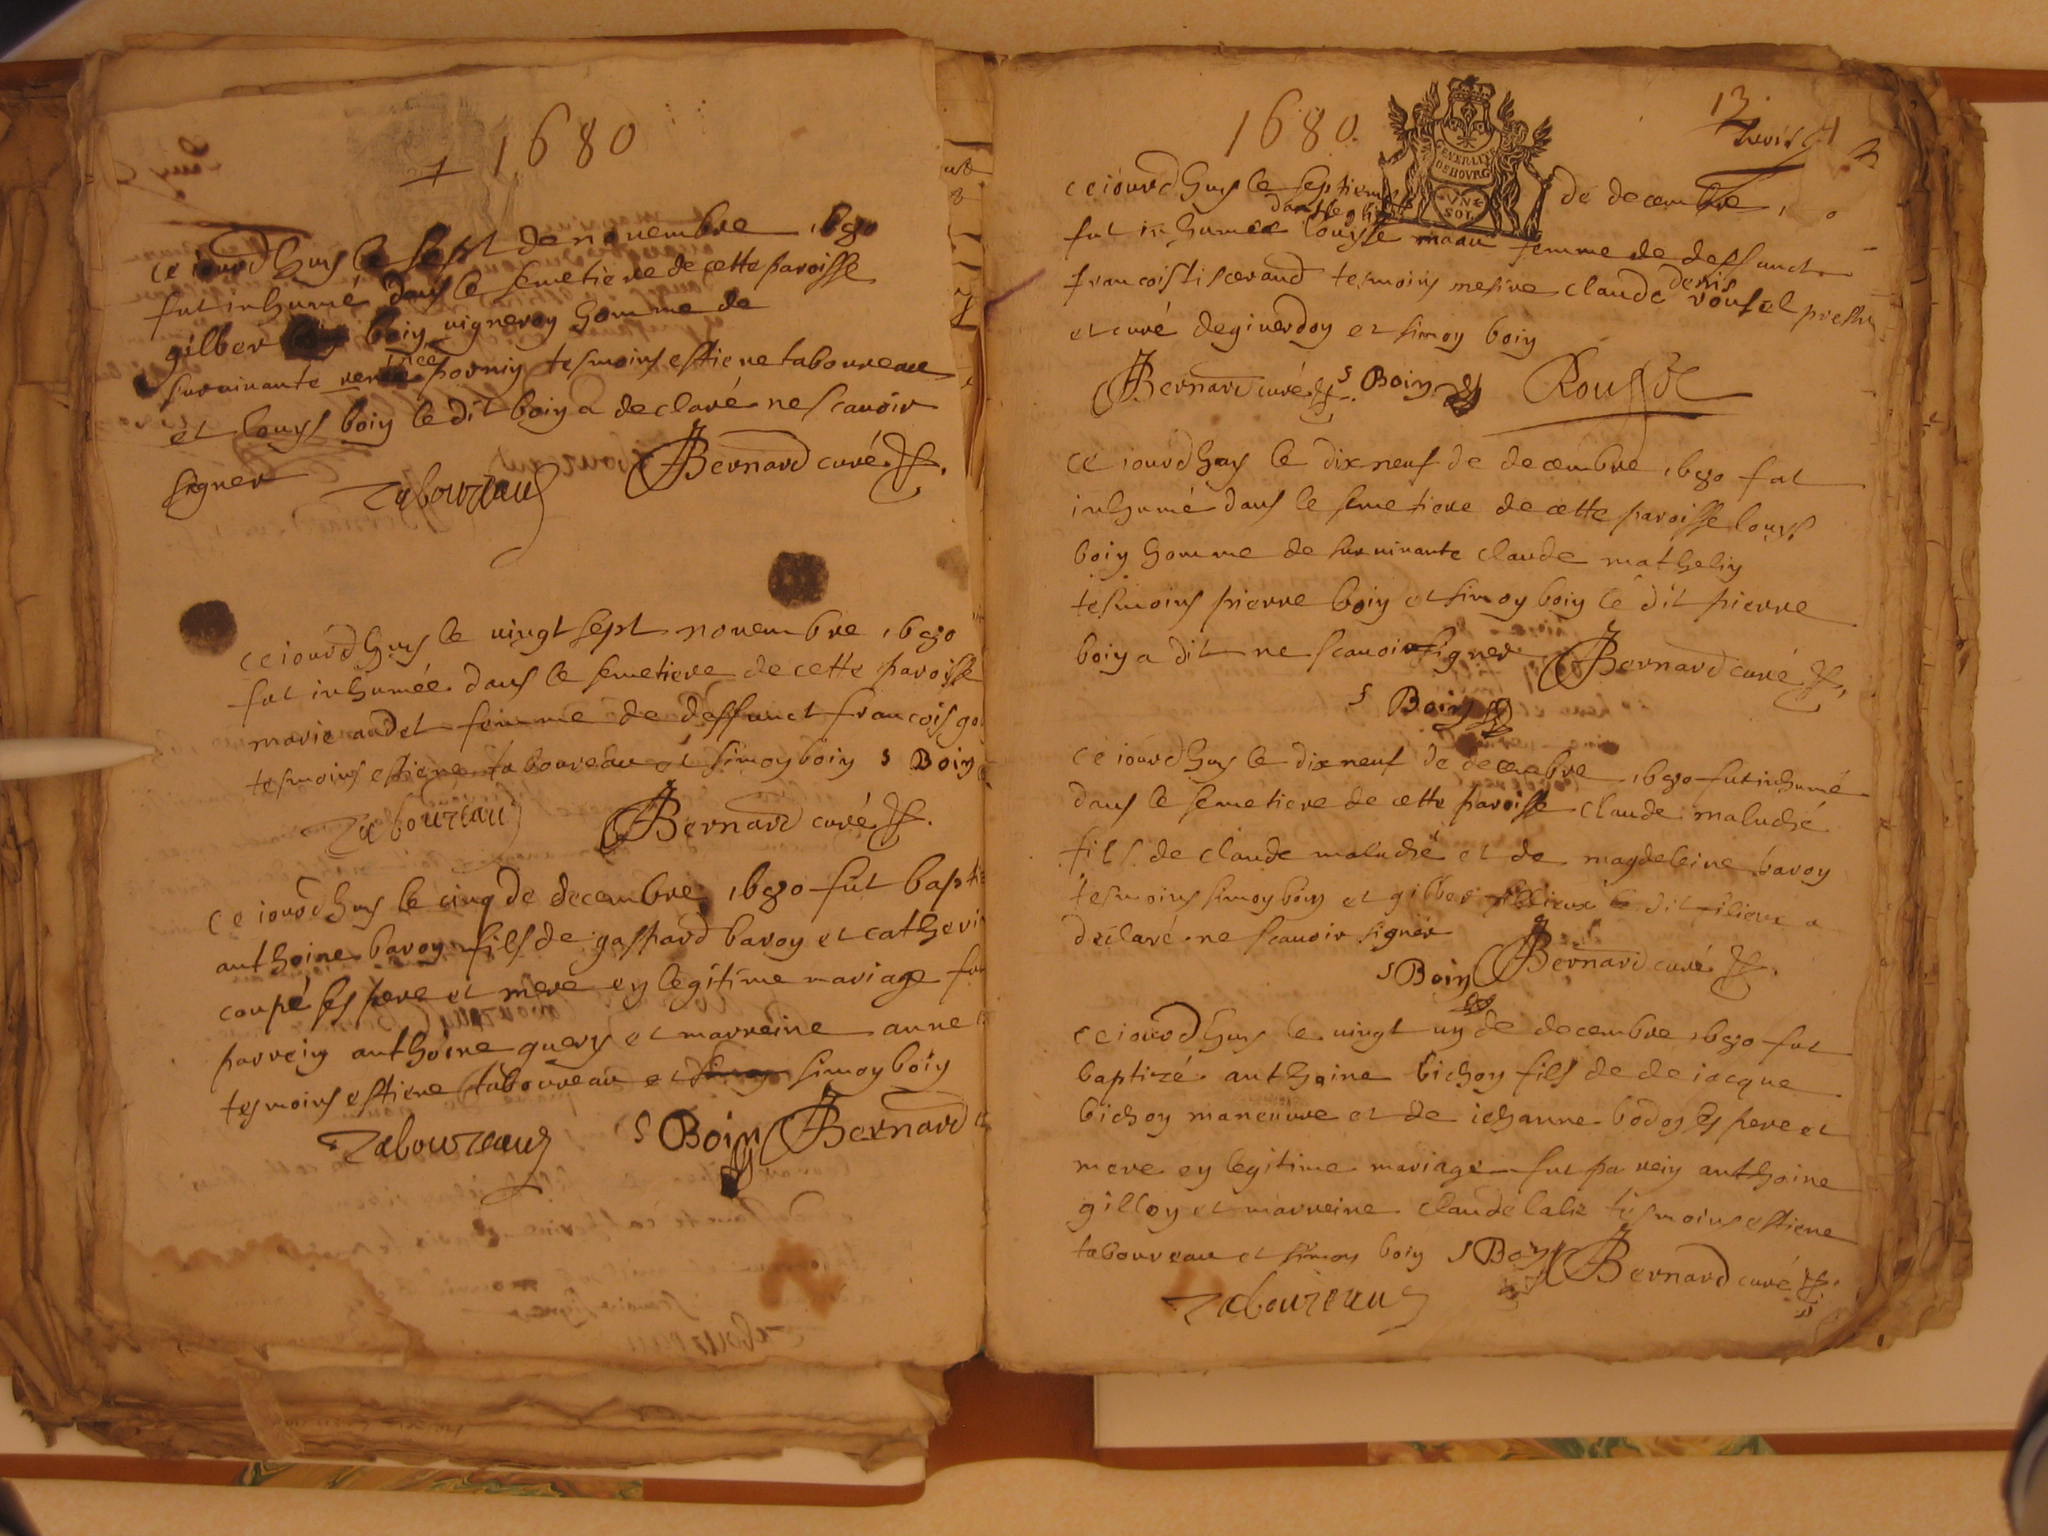 1680
ce iourdhuy le sept de novembre 1680
fut inhumé dans le semetiere de cette paroisse
gilber boin vigneron homme de
survivante pornin tesmoins estiene taboureau
et louys boin le dit boin a declaré ne scavoir
signer
Taboureau Bernard curé
ce iourdhuy le vingt sept novembre 1680
fut inhumée dans le semetiere de cette paroisse
marie audet femme de deffunct francois
tesmoins estiene taboureau et simon boin s Boin
Taboureau Bernard curé
ce iourdhuy le cinq de decembre 1680 fut
anthoine baron fils de gaspard baron et
coupé ses pere et mere en legitime mariage
parrein anthoine query et marreine anne
tesmoins estiene taboureau et simon simon boin
Taboureau s Boin Bernard
1680
GENERALITE
DE BOVRG
VN
SOL
13
ce iourdhuy le septieme de decembre
dans leglise
fut inhumée louyse femme de deffunct
denis
francois tiscerand tesmoins mesire claude rousel
et curé de giverdon et simon boin
Bernard curé s Boin Roussel
ce iourdhuy le dix neuf de decembre 1680 fut
inhumé dans le semetiere de cette paroisse louys
boin homme de survivante claude mathelin
tesmoins pierre boin et simon boin le dit pierre
boin a dit ne scavoir signer Bernard curé
s Boin
ce iourdhuy le dix neuf de decembre 1680 fut inhumé
dans le semetiere de cette paroisse claude maluché
fils de claude maluché et de magdeleine baron
tesmoins simon boin et gilber fillieux le dit filieux a
declaré ne scavoir signer
s Boin Bernard curé
ce iourdhuy le vingt un de decembre 1680 fut
baptizé anthoine bichon fils de de iacque
bichon maneuvre et de iehanne bodon ses pere et
mere en legitime mariage fut parrein anthoine
gillon et marreine claude tesmoins estiene
taboureau et simon boin s Boin Bernard curé
Taboureau